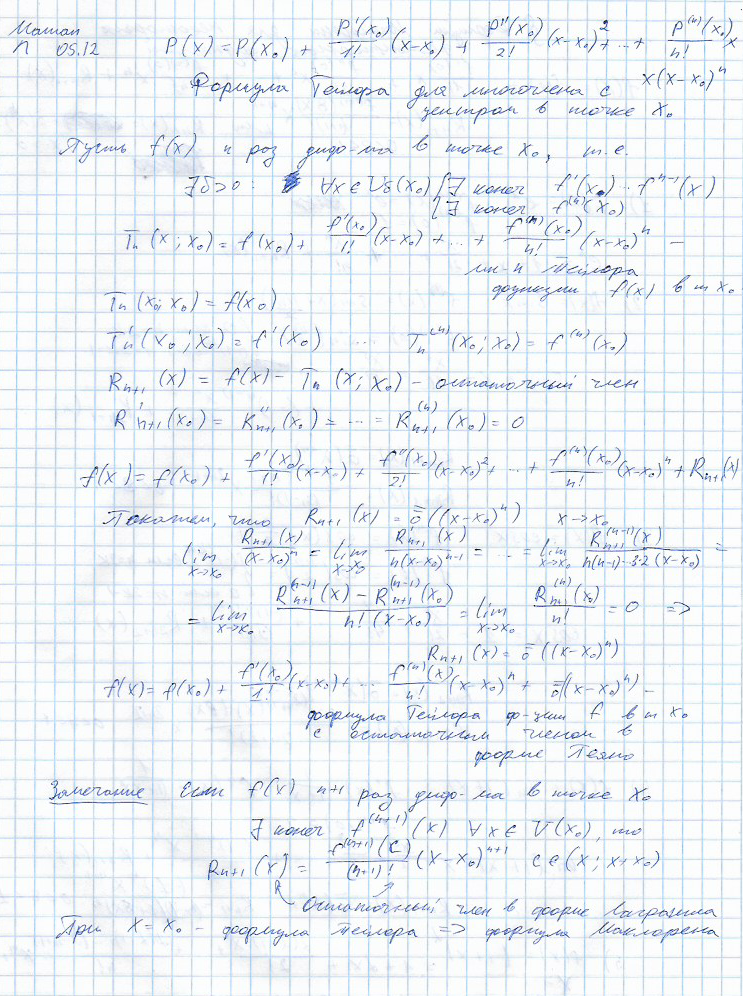 Матан
П 05.12
P(x) = P(x₀) + P'(x₀)/1! (x-x₀) + P''(x₀)/2! (x-x₀)² + ... + P⁽ⁿ⁾(x₀)/n! ×
×(x-x₀)ⁿ
Формула Тейлора для многочлена с
центром в точке x₀
Пусть f(x) n раз диф-ма в точке x₀, т.е.
∃δ>0: ∀x∈U_δ(x₀) {∃ конеч f'(x₀)...fⁿ⁻¹(x)
{∃ конеч f⁽ⁿ⁾(x₀)
Tₙ(x; x₀) = f(x₀) + f'(x₀)/1! (x-x₀) + ... + f⁽ⁿ⁾(x₀)/n! (x-x₀)ⁿ –
мн-н Тейлора
функции f(x) в т x₀
Tₙ(x₀; x₀) = f(x₀)
Tₙ'(x₀; x₀) = f'(x₀) ... Tₙ⁽ⁿ⁾(x₀; x₀) = f⁽ⁿ⁾(x₀)
Rₙ₊₁(x) = f(x) - Tₙ(x; x₀) – остаточный член
R'ₙ₊₁(x₀) = R''ₙ₊₁(x₀) = ... = R⁽ⁿ⁾ₙ₊₁(x₀) = 0
f(x) = f(x₀) + f'(x₀)/1! (x-x₀) + f''(x₀)/2! (x-x₀)² + ... + f⁽ⁿ⁾(x₀)/n! (x-x₀)ⁿ + Rₙ₊₁(x)
Покажем, что Rₙ₊₁(x) = ō((x-x₀)ⁿ) x→x₀
lim x→x₀ Rₙ₊₁(x)/(x-x₀)ⁿ = lim x→x₀ R'ₙ₊₁(x)/n(x-x₀)ⁿ⁻¹ = ... = lim x→x₀ R⁽ⁿ⁻¹⁾ₙ₊₁(x)/n(n-1)...3·2(x-x₀) =
= lim x→x₀ R⁽ⁿ⁻¹⁾ₙ₊₁(x) - R⁽ⁿ⁻¹⁾ₙ₊₁(x₀)/n!(x-x₀) = lim x→x₀ R⁽ⁿ⁾ₙ₊₁(x₀)/n! = 0 =>
Rₙ₊₁(x) = ō((x-x₀)ⁿ)
f(x) = f(x₀) + f'(x₀)/1! (x-x₀) + ... f⁽ⁿ⁾(x)/n! (x-x₀)ⁿ + ō((x-x₀)ⁿ) –
формула Тейлора ф-ции f в т x₀
с остаточным членом в
форме Пеано
Замечание Если f(x) n+1 раз диф-ма в точке x₀
∃ конеч f⁽ⁿ⁺¹⁾(x) ∀x∈U(x₀), то
Rₙ₊₁(x) = f⁽ⁿ⁺¹⁾(c)/(n+1)! (x-x₀)ⁿ⁺¹ c∈(x; x+x₀)
Остаточный член в форме Лагранжа
При x=x₀ – формула Тейлора => формула Маклорена